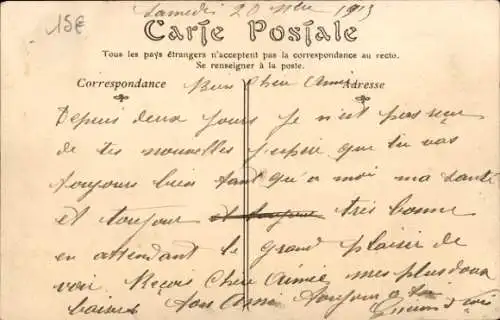 15€
Samedi 20 1913
Carte Postale
Tous les pays étrangers n'acceptent pas la correspondance au recto.
Se renseigner à la poste.
Correspondance Adresse
Bien Chère Aimée
Depuis deux jours je n'est pas reçu
de tes nouvelles j'espère que tu vas
toujours bien tant qu'a moi ma santé
et toujour et toujour très bonne
en attendant le grand plaisir de
voir Reçois Chère Aimée mes plus doux
baisers Ton Ami toujour a toi